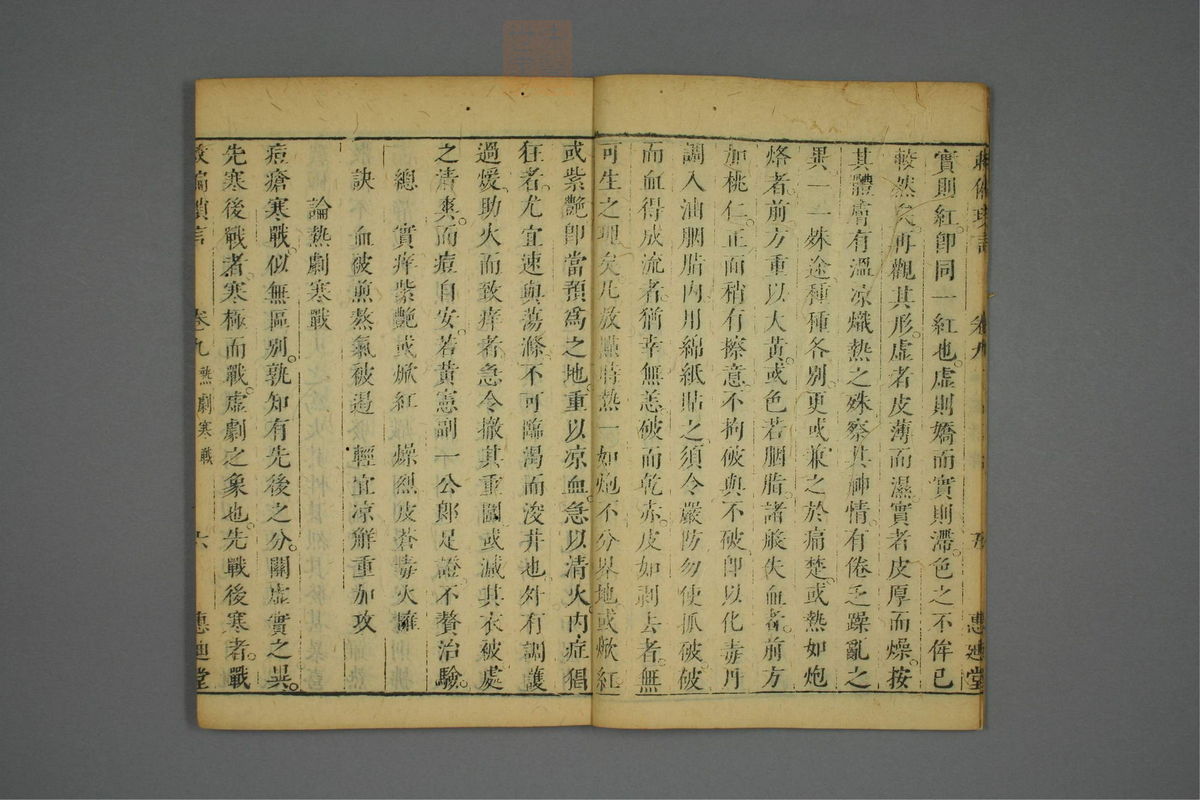 實則紅卽同一紅也虛則嬌而實則滯色之不侔已
較然矣再觀其形虛者皮薄而濕實者皮厚而燥按
其體膚有溫凉熾熱之殊察其神情有倦乏躁亂之
異一一殊途種種各別更或兼之於痛楚或熱如炮
烙者前方重以大黃或色若胭脂諸般失血者前方
加桃仁正面稍有擦意不拘破與不破卽以化毒丹
調入油胭脂內用綿紙貼之須令嚴防勿使抓破破
而血得成流者猶幸無恙破而乾赤皮如剥去者無
可生之理矣凡放㸃時熱一如炮不分界地或焮紅
或紫艷卽當預爲之地重以凉血急以清火內症猖
狂者尤宜速與蕩滌不可臨渴而浚井也外有調護
過煖助火而致痒者急令撤其重圍或減其衣被處
之清爽而痘自安若黃憲副一公郎足證不贅治驗
總 實痒紫艷或焮紅 燥烈皮蒼毒火擁
訣 不血被煎熬氣被遏 輕宜凉解重加攻
論熱劇寒戰
痘瘡寒戰似無區別孰知有先後之分關虛實之異
先寒後戰者寒極而戰虛劇之象也先戰後寒者戰
救偏瑣言 卷九 熱劇寒戰 六 惠迪堂